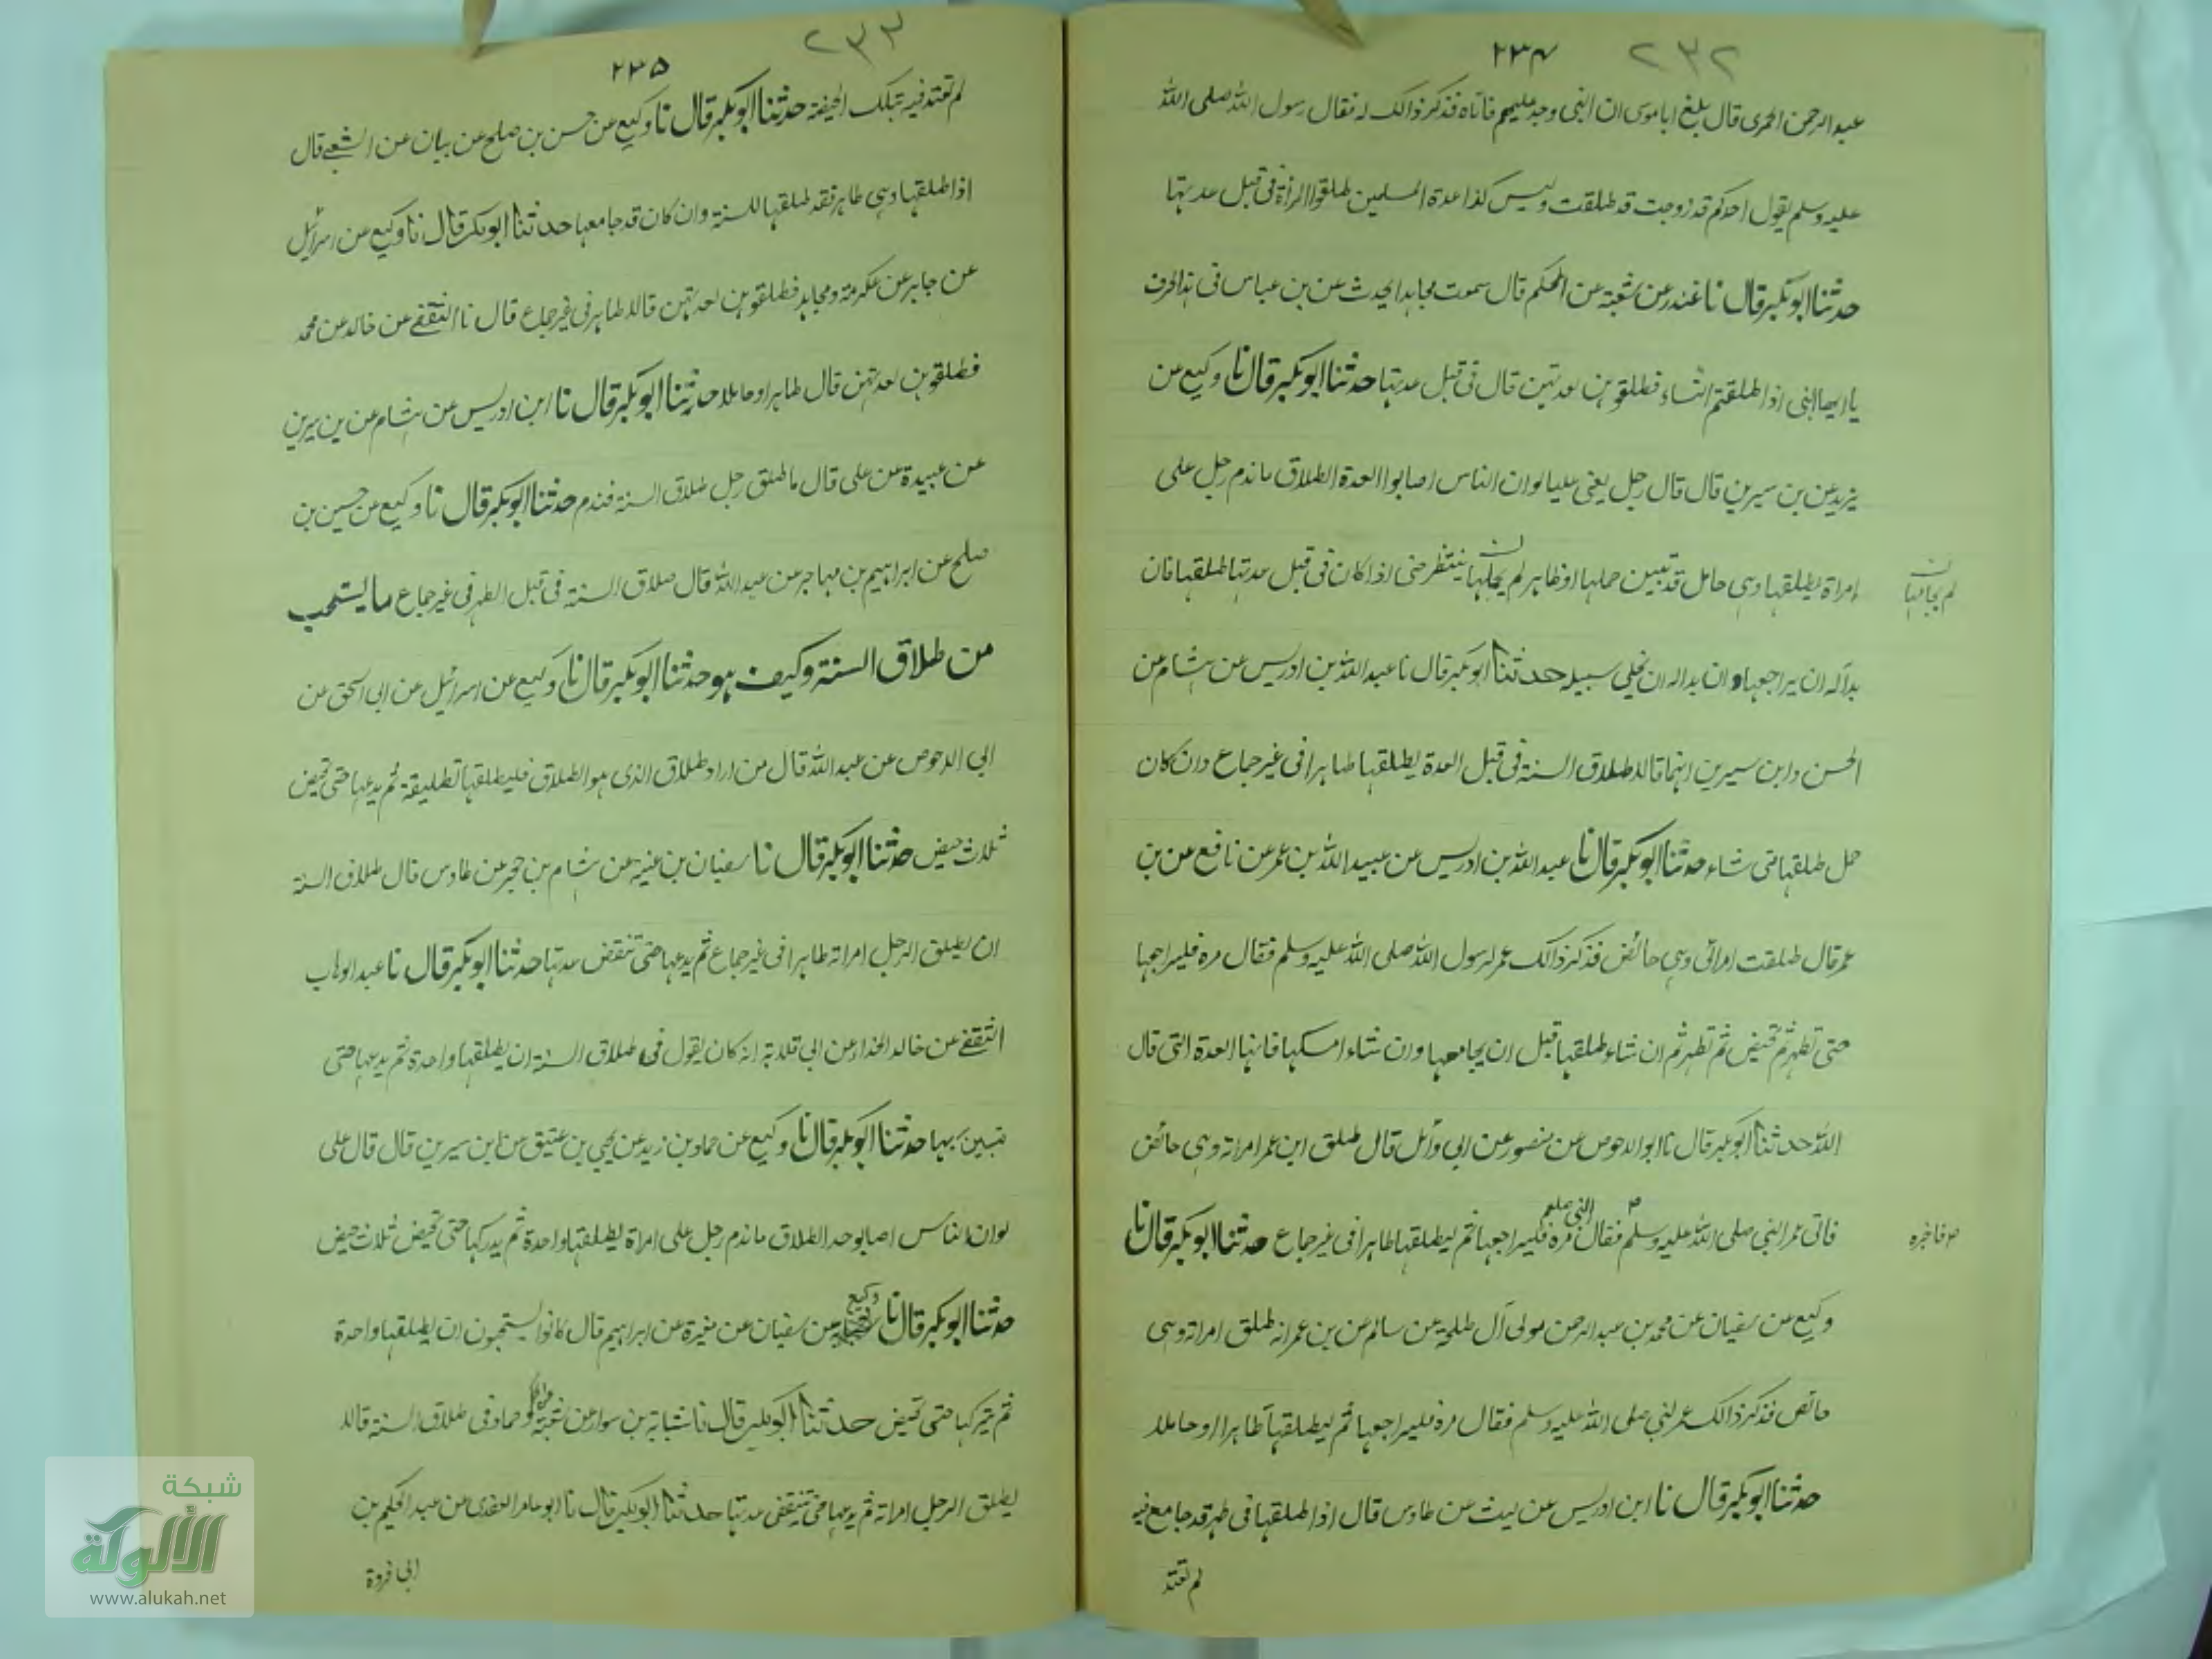 ٢٣٢ ٢٣٤
عبد الرحمن الحمرى قال بلغ ابا موسى ان النبى وجد عليهم فاتاه فذكر ذالك له فقال رسول الله صلى الله
عليه وسلم يقول احدكم قد زوجت قد طلقت وليس كذا عدة المسلمين طلقوا المرأة فى قبل عدتها
حدثنا ابو بكر قال نا غندر عن شعبة عن الحكم قال سمعت مجاهدا يحدث عن بن عباس فى هذا الحرف
يا ايها النبى اذا طلقتم النساء فطلقوهن لعدتهن قال فى قبل عدتها حدثنا ابو بكر قال نا وكيع عن
يزيد عن بن سيرين قال قال رجل يعنى عليا لو ان الناس اصابوا العدة الطلاق ما ندم رجل على
امراة يطلقها وهى حامل قد تبين حملها او طاهر لم يجلها ينتظر حتى اذا كان فى قبل عدتها طلقها فان
لم يجامعها
بدأ له ان يراجعها وان بدا له ان يخلى سبيله حدثنا ابو بكر قال نا عبد الله بن ادريس عن هشام عن
الحسن وابن سيرين انهما قالا طلاق السنة فى قبل العدة يطلقها طاهرا فى غير جماع وان كان
حمل طلقها متى شاء حدثنا ابو بكر قال نا عبد الله بن ادريس عن عبيد الله بن عمر عن نافع عن بن
عمر قال طلقت امرأتى وهى حائض فذكر ذالك عمر لرسول الله صلى الله عليه وسلم فقال مره فليراجعها
حتى تطهر ثم تحيض ثم تطهر ثم ان شاء طلقها قبل ان يجامعها وان شاء امسكها فانها العدة التى قال
الله حدثنا ابو بكر قال نا ابو الاحوص عن منصور عن ابى وأئل قال طلق ابن عمر امراته وهى حائض
فاتى عمر النبى صلى الله عليه وسلم فقال النبى صلعم مره فليراجعها ثم ليطلقها طاهرا فى غير جماع حدثنا ابو بكر قال نا
ص فاخبره
وكيع عن سفيان عن محمد بن عبد الرحمن مولى آل طلحة عن سالم عن بن عمر انه طلق امراته وهى
حائض فذكر ذالك عمر لنبى صلى الله عليه وسلم فقال مره فليراجعها ثم ليطلقها طاهرا او حاملا
حدثنا ابو بكر قال نا ابن ادريس عن ليث عن طاوس قال اذا طلقها فى طهر قد جامع فيه
لم تعتد
٢٣٣ ٢٣٥
لم تعتد فيه بتلك الحيضة حدثنا ابو بكر قال نا وكيع عن حسن بن صلح عن بيان عن الشعبى قال
اذا طلقها وهى طاهر فقد طلقها للسنة وان كان قد جامعها حدثنا ابو بكر قال نا وكيع عن اسرائيل
عن جابر عن عكرمة ومجاهد فطلقوهن لعدتهن قالا طاهر فى غير جماع قال نا الثقفى عن خالد عن محمد
فطلقوهن لعدتهن قال طاهرا او حاملا حدثنا ابو بكر قال نا ابن ادريس عن هشام عن بن سيرين
عن عبيدة عن على قال ما طلق رجل طلاق السنة فندم حدثنا ابو بكر قال نا وكيع عن حسين بن
صلح عن ابراهيم بن مهاجر عن عبد الله قال طلاق السنة فى قبل الطهر فى غير جماع ما يستحب
من طلاق السنة وكيف هو حدثنا ابو بكر قال نا وكيع عن اسرائيل عن ابى اسحق عن
ابى الاحوص عن عبد الله قال من اراد طلاق الذى هو الطلاق فليطلقها تطليقة ثم يدعها حتى تحيض
ثلاث حيض حدثنا ابو بكر قال نا سفيان بن عنية عن هشام بن حجير عن طاوس قال طلاق السنة
ان يطلق الرجل امراته طاهرا فى غير جماع ثم يدعها حتى تنقض عدتها حدثنا ابو بكر قال نا عبد الوهاب
الثقفى عن خالد الحذاء عن ابى قلابة انه كان يقول فى طلاق السنة ان يطلقها واحدة ثم يدعها حتى
تبين بها حدثنا ابو بكر قال نا وكيع عن حماد بن زيد عن يحيى بن عتيق عن ابن سيرين قال قال على
لو ان الناس اصابو حد الطلاق ما ندم رجل على امراة يطلقها واحدة ثم يدركها حتى تحيض ثلاث حيض
حدثنا ابو بكر قال نا وكيع عن سفيان عن مغيرة عن ابراهيم قال كانوا يستحبون ان يطلقها واحدة
ثم يتركها حتى تحيض حدثنا ابو بكر قال نا شبابة بن سوار عن شعبة عن الحكم وحماد فى طلاق السنة قالا
يطلق الرجل امراته ثم يدعها حتى تنقضى عدتها حدثنا ابو بكر قال نا ابو عامر العقدى عن عبد الحكيم بن
ابى فروة
شبكة
الألوكة
www.alukah.net